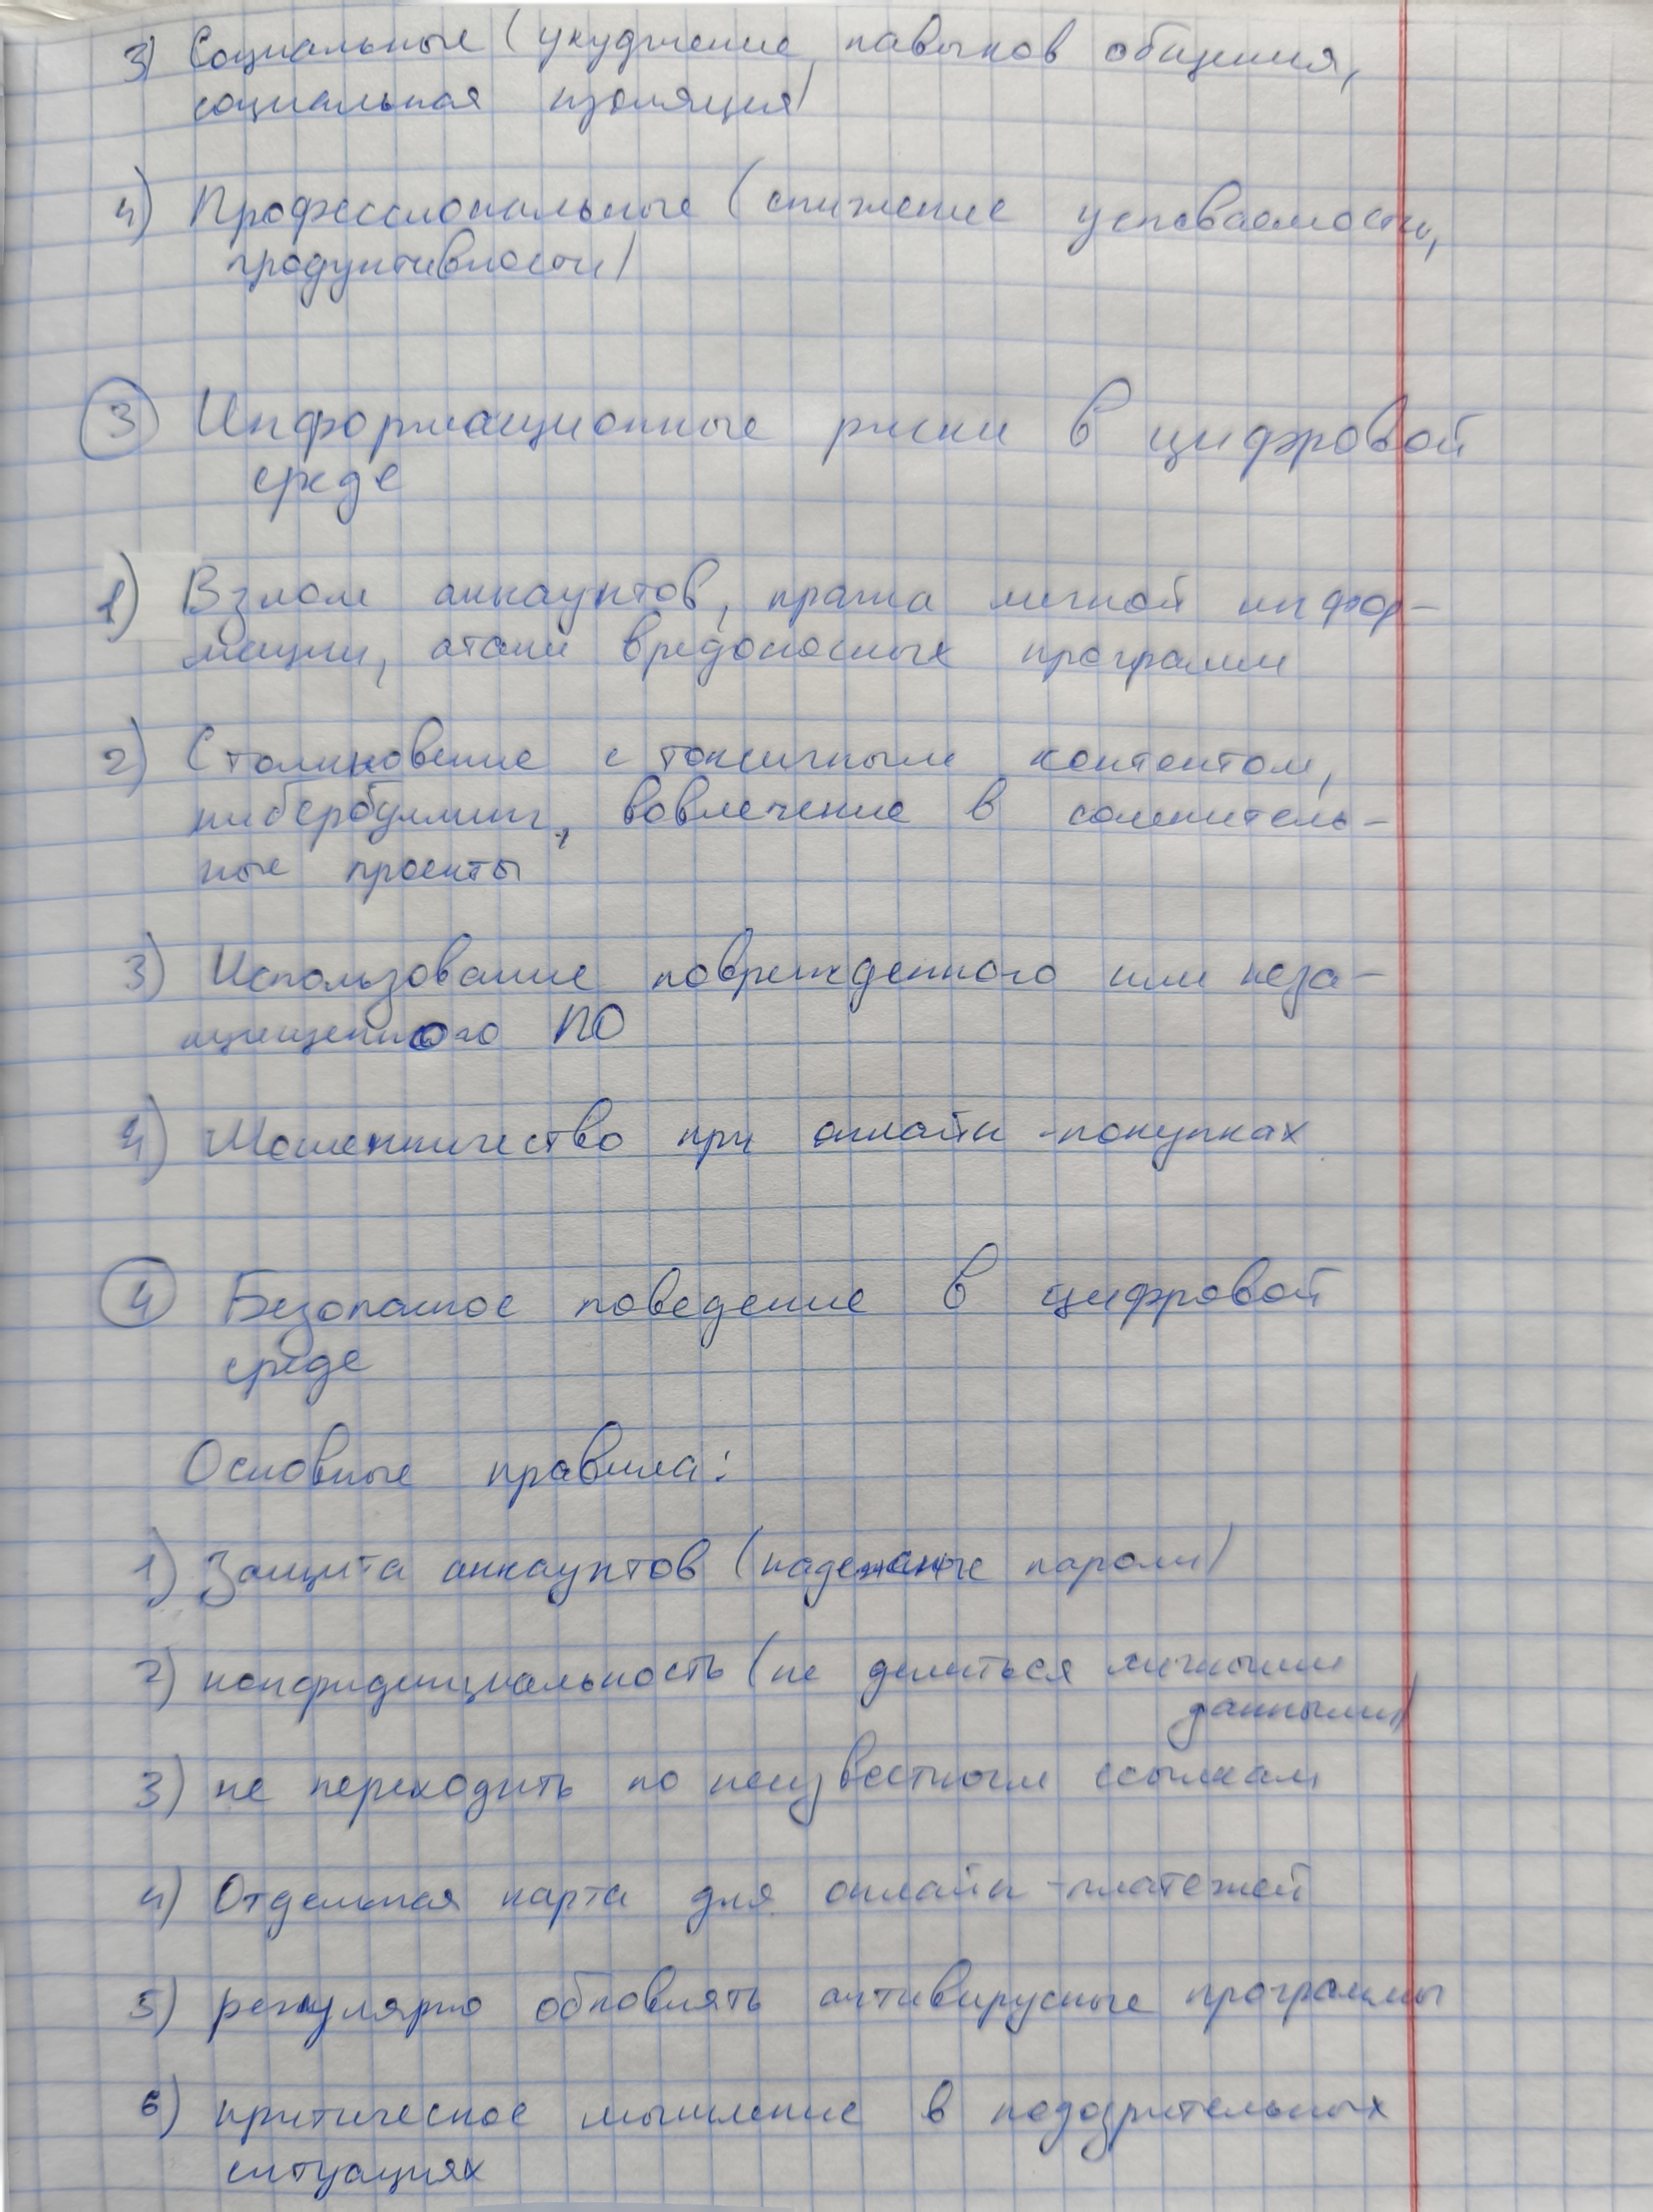 3) Социальные (ухудшение навыков общения,
социальная изоляция)
4) Профессиональные (снижение успеваемости,
продуктивности)
3 Информационные риски в цифровой
среде
1) Взлом аккаунтов, кража личной инфор-
мации, атаки вредоносных программ
2) Столкновение с токсичным контентом,
кибербуллинг, вовлечение в сомнитель-
ные проекты
3) Использование поврежденного или неза-
щищенного ПО
4) Мошенничество при онлайн-покупках
4 Безопасное поведение в цифровой
среде
Основные правила:
1) Защита аккаунтов (надежные пароли)
2) конфиденциальность (не делиться личными
данными)
3) не переходить по неизвестным ссылкам
4) Отдельная карта для онлайн-платежей
5) регулярно обновлять антивирусные программы
6) критическое мышление в подозрительных
ситуациях